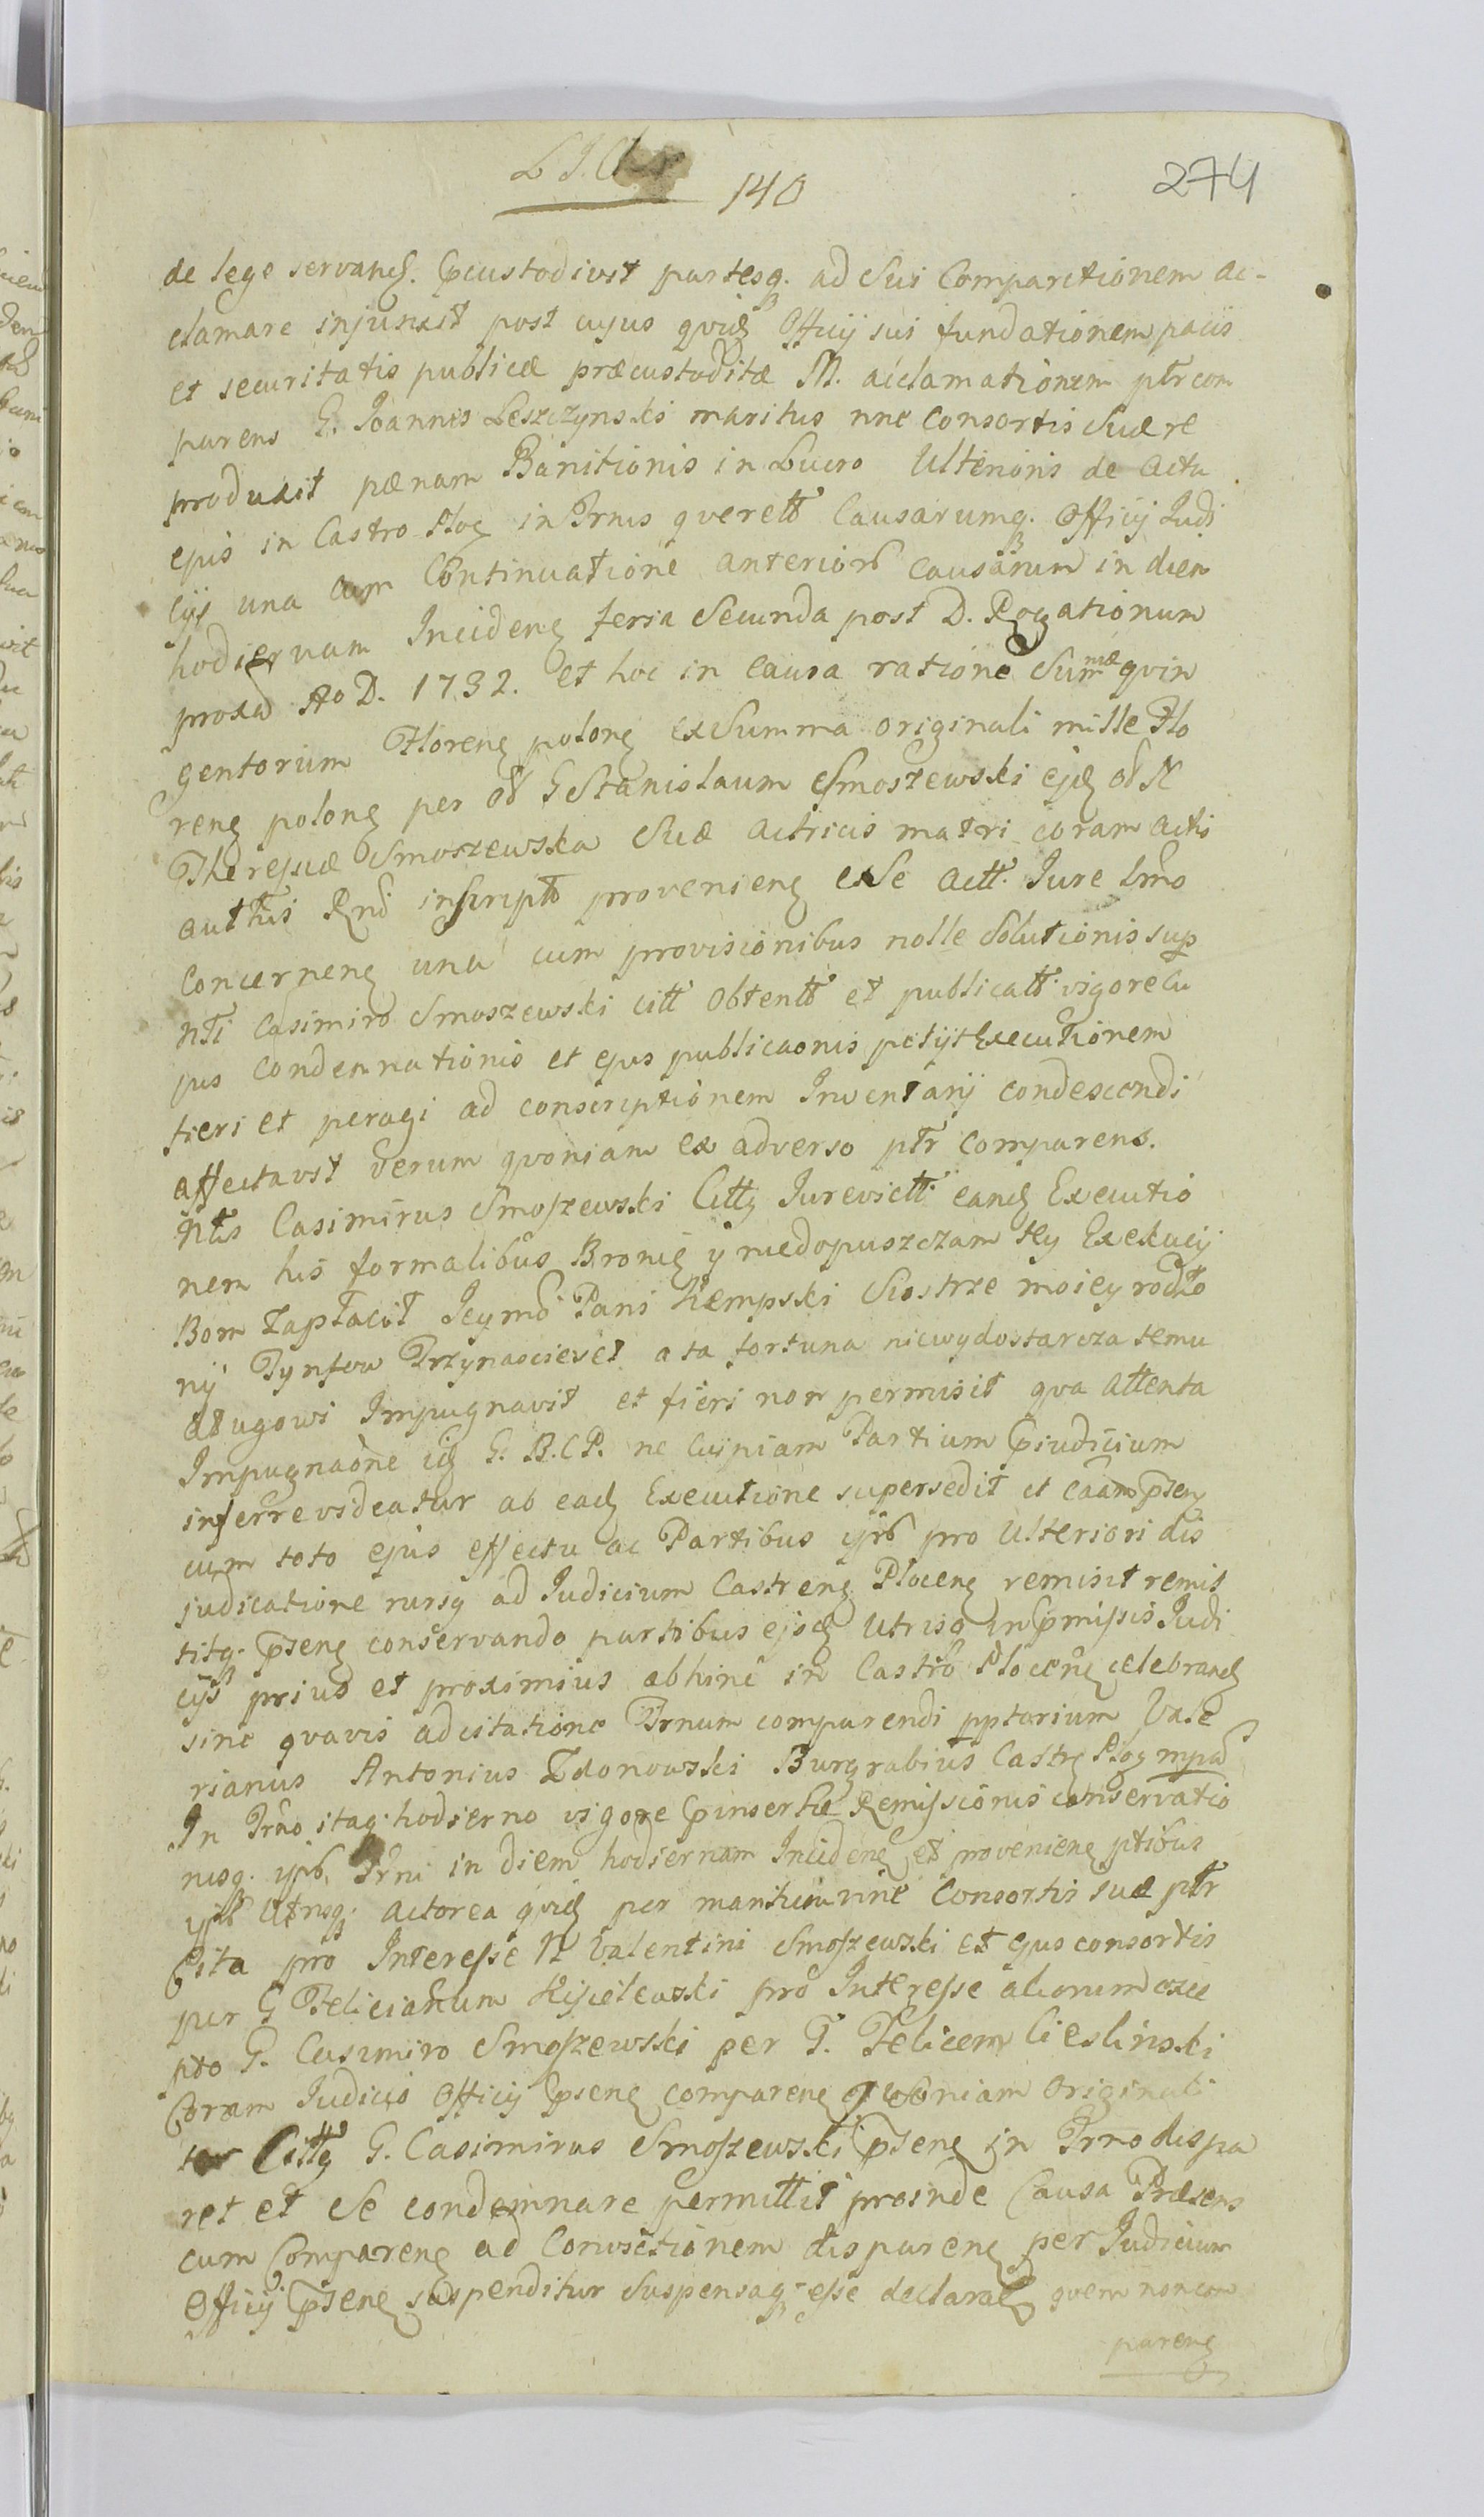 140
274
de lege servand. Pcustodivit partesq. ad Sui Comparitionem ac-
clamare injunxit post cujus quid Officij sui fundationem pacis
et securitatis publicæ præcustoditæ M. acclamationem ptr com
parens G. Joannes Leszczynski maritus nne Consortis Suæ re
produxit pænam Banitionis in Lucro Ulterioris de actu
ejus in Castro Ploc in Trnis querell Causarumq. Officij Judi
cijs una cum Continuatione anterior causarum in diem
hodiernam Incideng feria Secunda post D. Rogationum
proxa Ao D. 1732. et hoc in causa ratione Summæ quin
gentorum Floreng polong ex Summa originali mille Flo
reng polong per G Stanislaum Smoszewski ejd N
Theresiæ Smoszewska Suæ actricis matri coram actis
authis Rnd inscript provenieng exSe actt. Jure Lmo
Concerneng una cum provisionibus nolle Solutionis sup
Nti Casimiro Smoszewski citt Obtentt et publicatt vigore Cu
jus condemnationis et ejus publicaonis petijt Executionem
fieri et peragi ad conscriptionem Inventarij condescendi
affectavit verum quoniam ex adverso ptr comparens.
Ntis Casimirus Smoszewski Citty Jurevictt. eand Executio
nem his formalibus Bronię y niedopuszczam tey Exekucij
Bom zapłacił Jeymo Pani Kempski Siostrze moiey rodzo
nÿ Tynfow Trzynascieset a ta fortuna niewydostarcza temu
długowi Impugnavit et fieri non permisit qva attenta
Impugnaone id G. B.C.P. ne Cuipiam Partium Pjudicium
inferre videatur ab ead Executione supersedit et caam pseng
cum toto ejus effectu ac Partibus ijsd pro Ulteriori dis
judicatione rursq ad Judicium Castreng Ploceng remisit remit
titq. pseng conservando partibus ejsd Utrisq in Pmissis Judi
cijs prius et proximius abhinc in Castro Ploceng celebrand
sine qvavis adcitatione Trnum comparendi pptorium Vale
rianus Antonius Zdonowski Burgrabius Castr Plog mpa
In Trno itaq. hodierno vigore Pinsertæ Remissionis conservatio
nisq. ipsi Trni in diem hodiernam Incideng et provenieng ptibus
ipsis Utrisq. actorea quid per maritum nne Consortis suæ ptr
Cita pro Interesse N Valentini Smoszewski et ejus consortis
per G Felicianum Kisielewski pro Interesse aliorum exce
pto G. Casimiro Smoszewski per G. Felicem Cieslinski
Coram Judicio Officij pseng compareng qvoniam Originali
ter Citty G. Casimirus Smoszewski pseng in Trno dispa
ret et Se condemnare permittit proinde Causa Præsens
cum Compareng ad Convictionem dispareng per Judicium
Officij pseng suspenditur Suspensaq. esse declarat quem non com
pareng